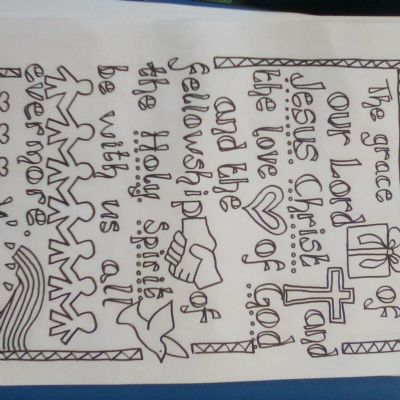 The grace of
our Lord
Jesus Christ and
the love of God
and the
fellowship of
the Holy Spirit
be with us all
evermore.